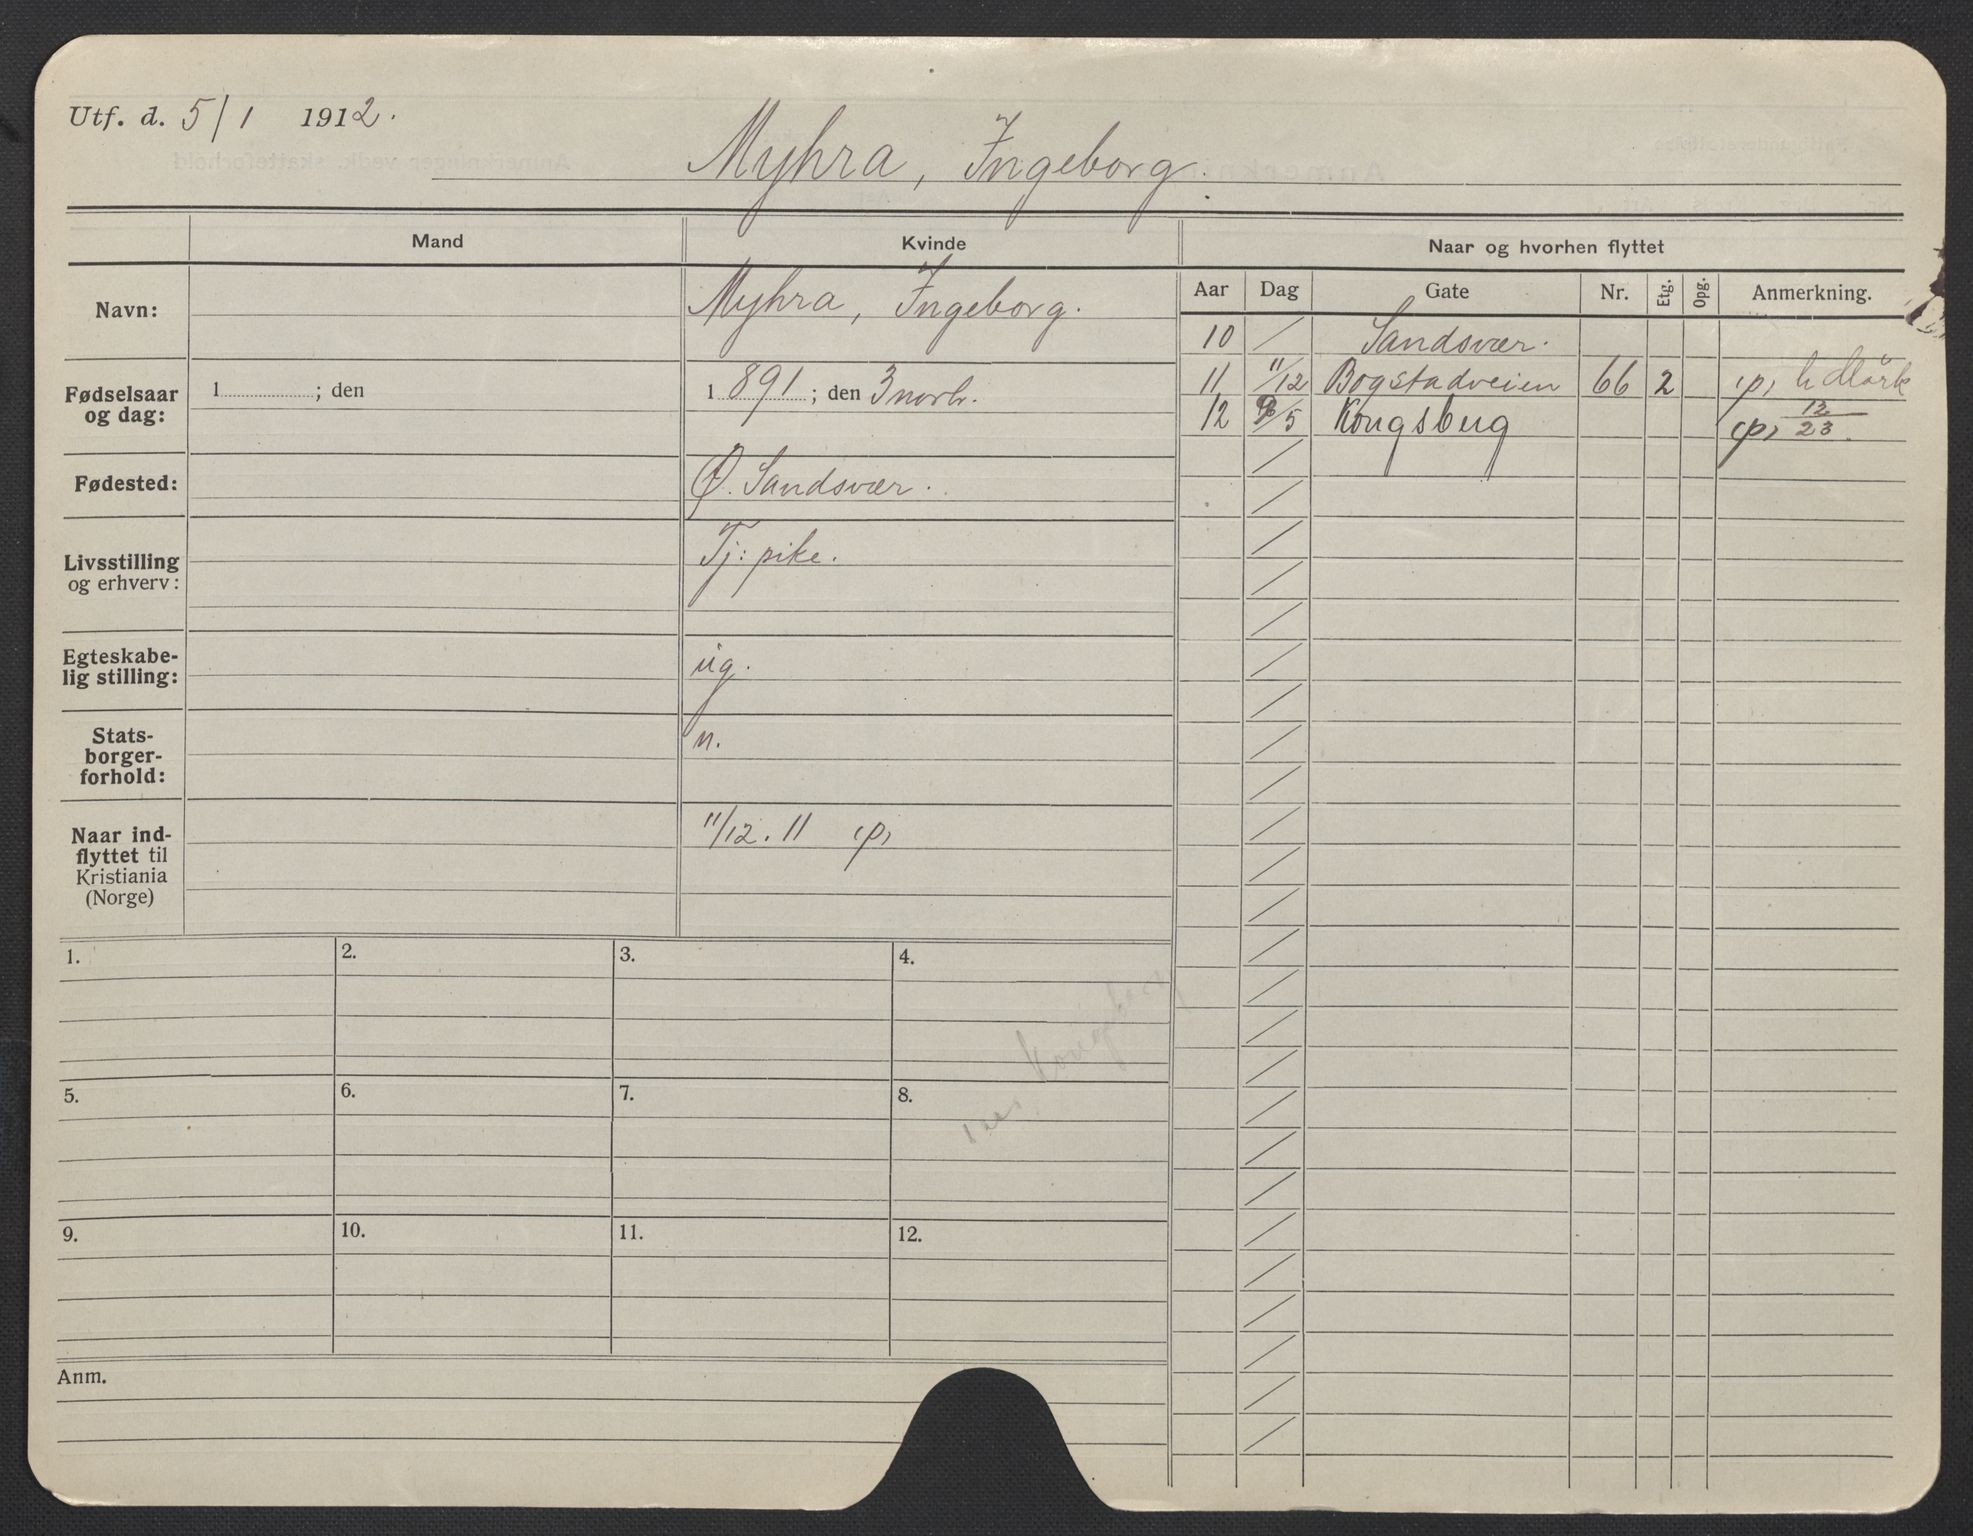 Utf. d. 5/1 1912.
Myhra, Ingeborg.
Mand
Kvinde
Naar og hvorhen flyttet
Navn:
Myhra, Ingeborg.
Aar Dag Gate Nr. Etg. Opg. Anmerkning.
10 / Sandsvær.
11 11/12 Bogstadveien 66 2 (p) h Mörk
12 /5 Kongsberg (p) 12/23.
Fødselsaar
og dag:
1 ; den
1 891 ; den 3 novb.
Fødested:
Ø. Sandsvær.
Livsstilling
og erhverv:
Tj: pike.
Egteskabe-
lig stilling:
ug.
Stats-
borger-
forhold:
n.
Naar ind-
flyttet til
Kristiania
(Norge)
11/12. 11 (p)
1. 2. 3. 4.
Kongsberg
5. 6. 7. 8.
9. 10. 11. 12.
Anm.